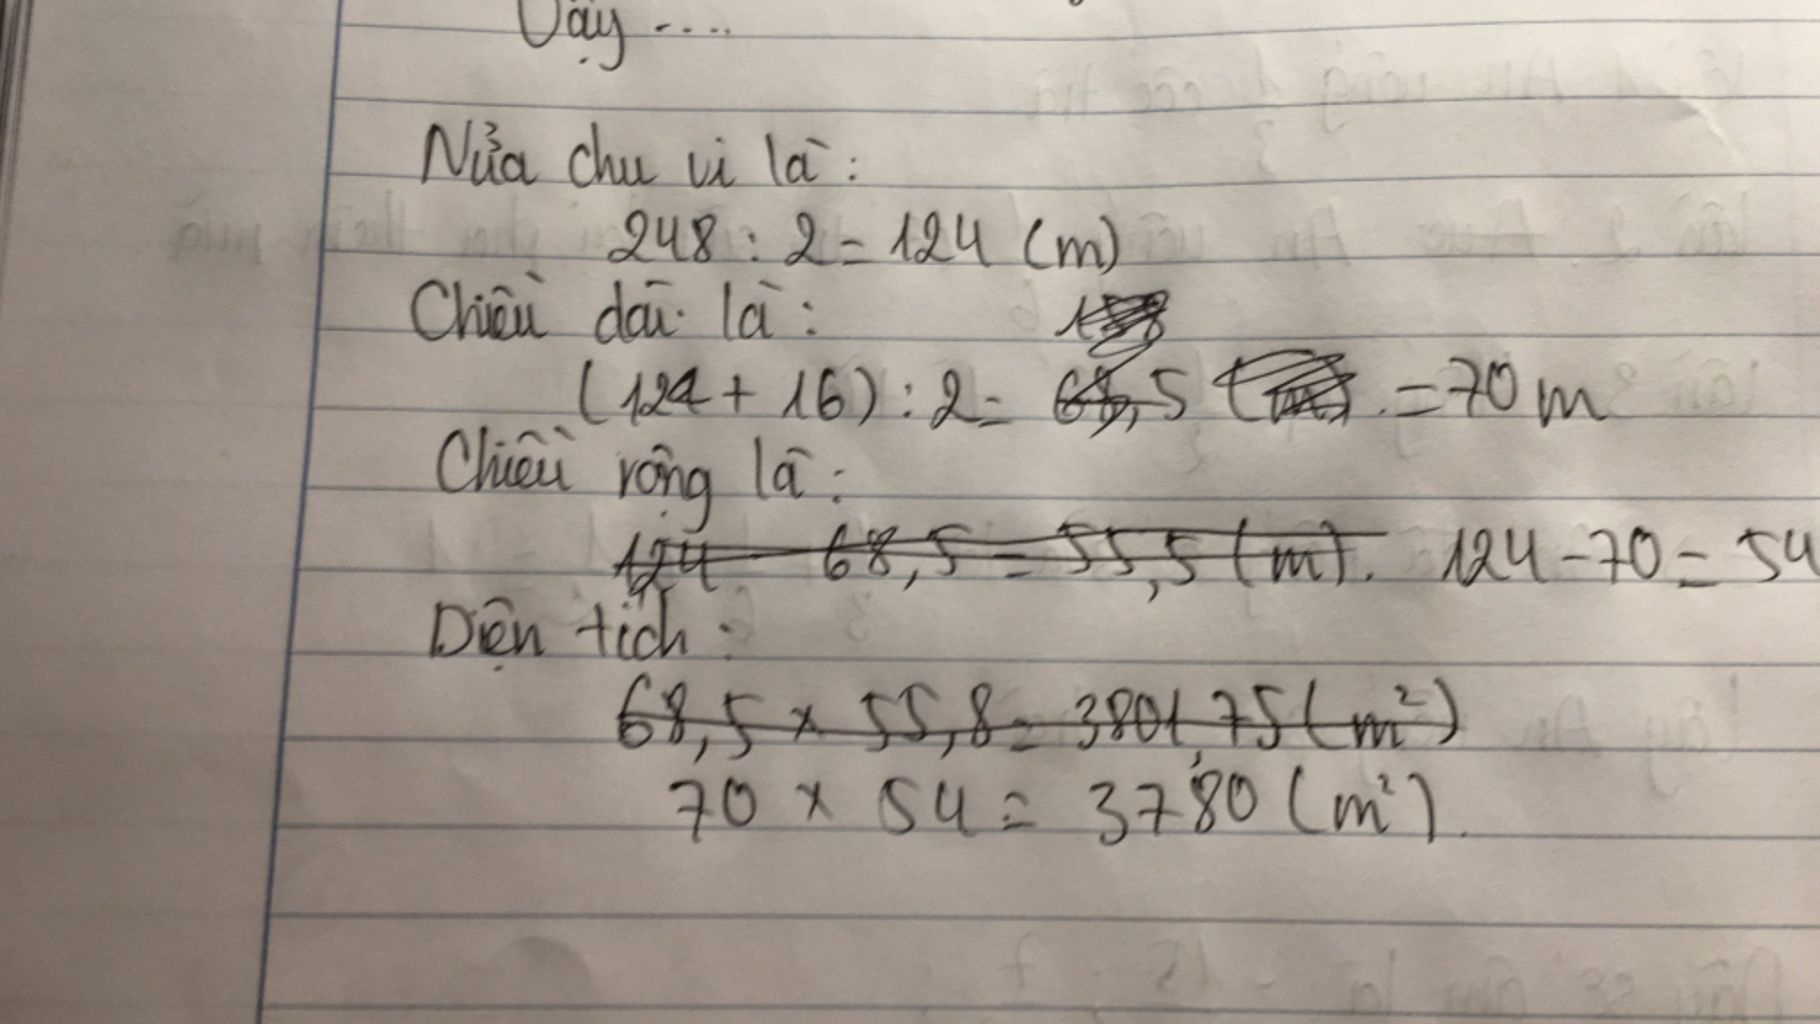 Vậy ....
Nửa chu vi là:
248 : 2 = 124 (m)
Chiều dài là:
(124 + 16) : 2 = 68,5 (m) = 70 m
Chiều rộng là:
124 - 68,5 = 55,5 (m). 124 - 70 = 54
Diện tích:
68,5 x 55,8 = 3801,75 (m²)
70 x 54 = 3780 (m²).